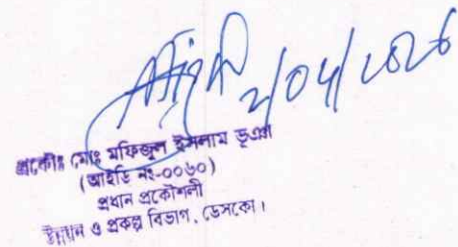 ২/০৭/২০২৬
প্রকৌঃ মোঃ মফিজুল ইসলাম ভূঞা
(আইডি নং-০০৬০)
প্রধান প্রকৌশলী
উন্নয়ন ও প্রকল্প বিভাগ, ডেসকো।